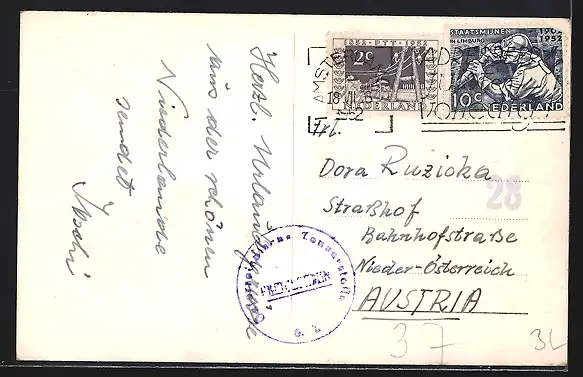 Herzl. Urlaubsgrüsse
aus der schönen
Niederlande
sendet
1852 · PTT · 1952
2c
NEDERLAND
STAATSMIJNEN 1902
IN LIMBURG 1952
10c NEDERLAND
AMSTERDAM
18.VII
1952
Frl.
Dora Ruzicka
Straßhof
Bahnhofstraße
Nieder-Österreich
AUSTRIA
28
Österreichische Zensurstelle
37
32